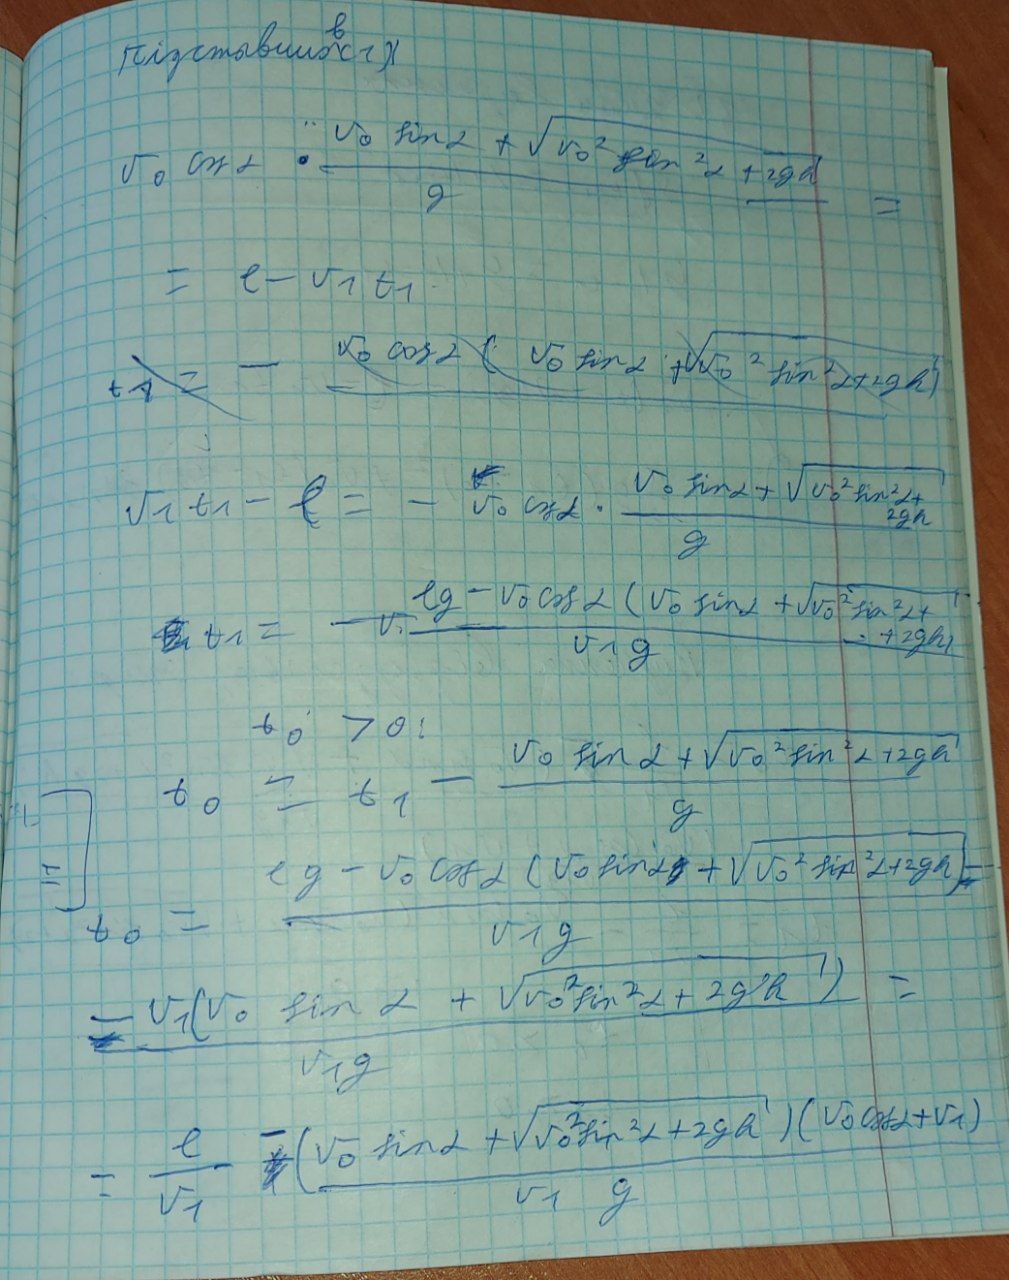 Підставимо в (1)
v₀ cos α · (v₀ sin α + √(v₀² sin² α + 2gh)) / g =
= l - v₁ t₁
t₁ = - v₀ cos α (v₀ sin α + √(v₀² sin² α + 2gh))
v₁ t₁ - l = - v₀ cos α · (v₀ sin α + √(v₀² sin² α + 2gh)) / g
t₁ = (lg - v₀ cos α (v₀ sin α + √(v₀² sin² α + 2gh))) / v₁ g
t₀ > 0:
t₀ = t₁ - (v₀ sin α + √(v₀² sin² α + 2gh)) / g
t₀ = (lg - v₀ cos α (v₀ sin α + √(v₀² sin² α + 2gh))) / v₁ g -
- v₁ (v₀ sin α + √(v₀² sin² α + 2gh)) / v₁ g =
= l / v₁ - (v₀ sin α + √(v₀² sin² α + 2gh)) (v₀ cos α + v₁) / v₁ g